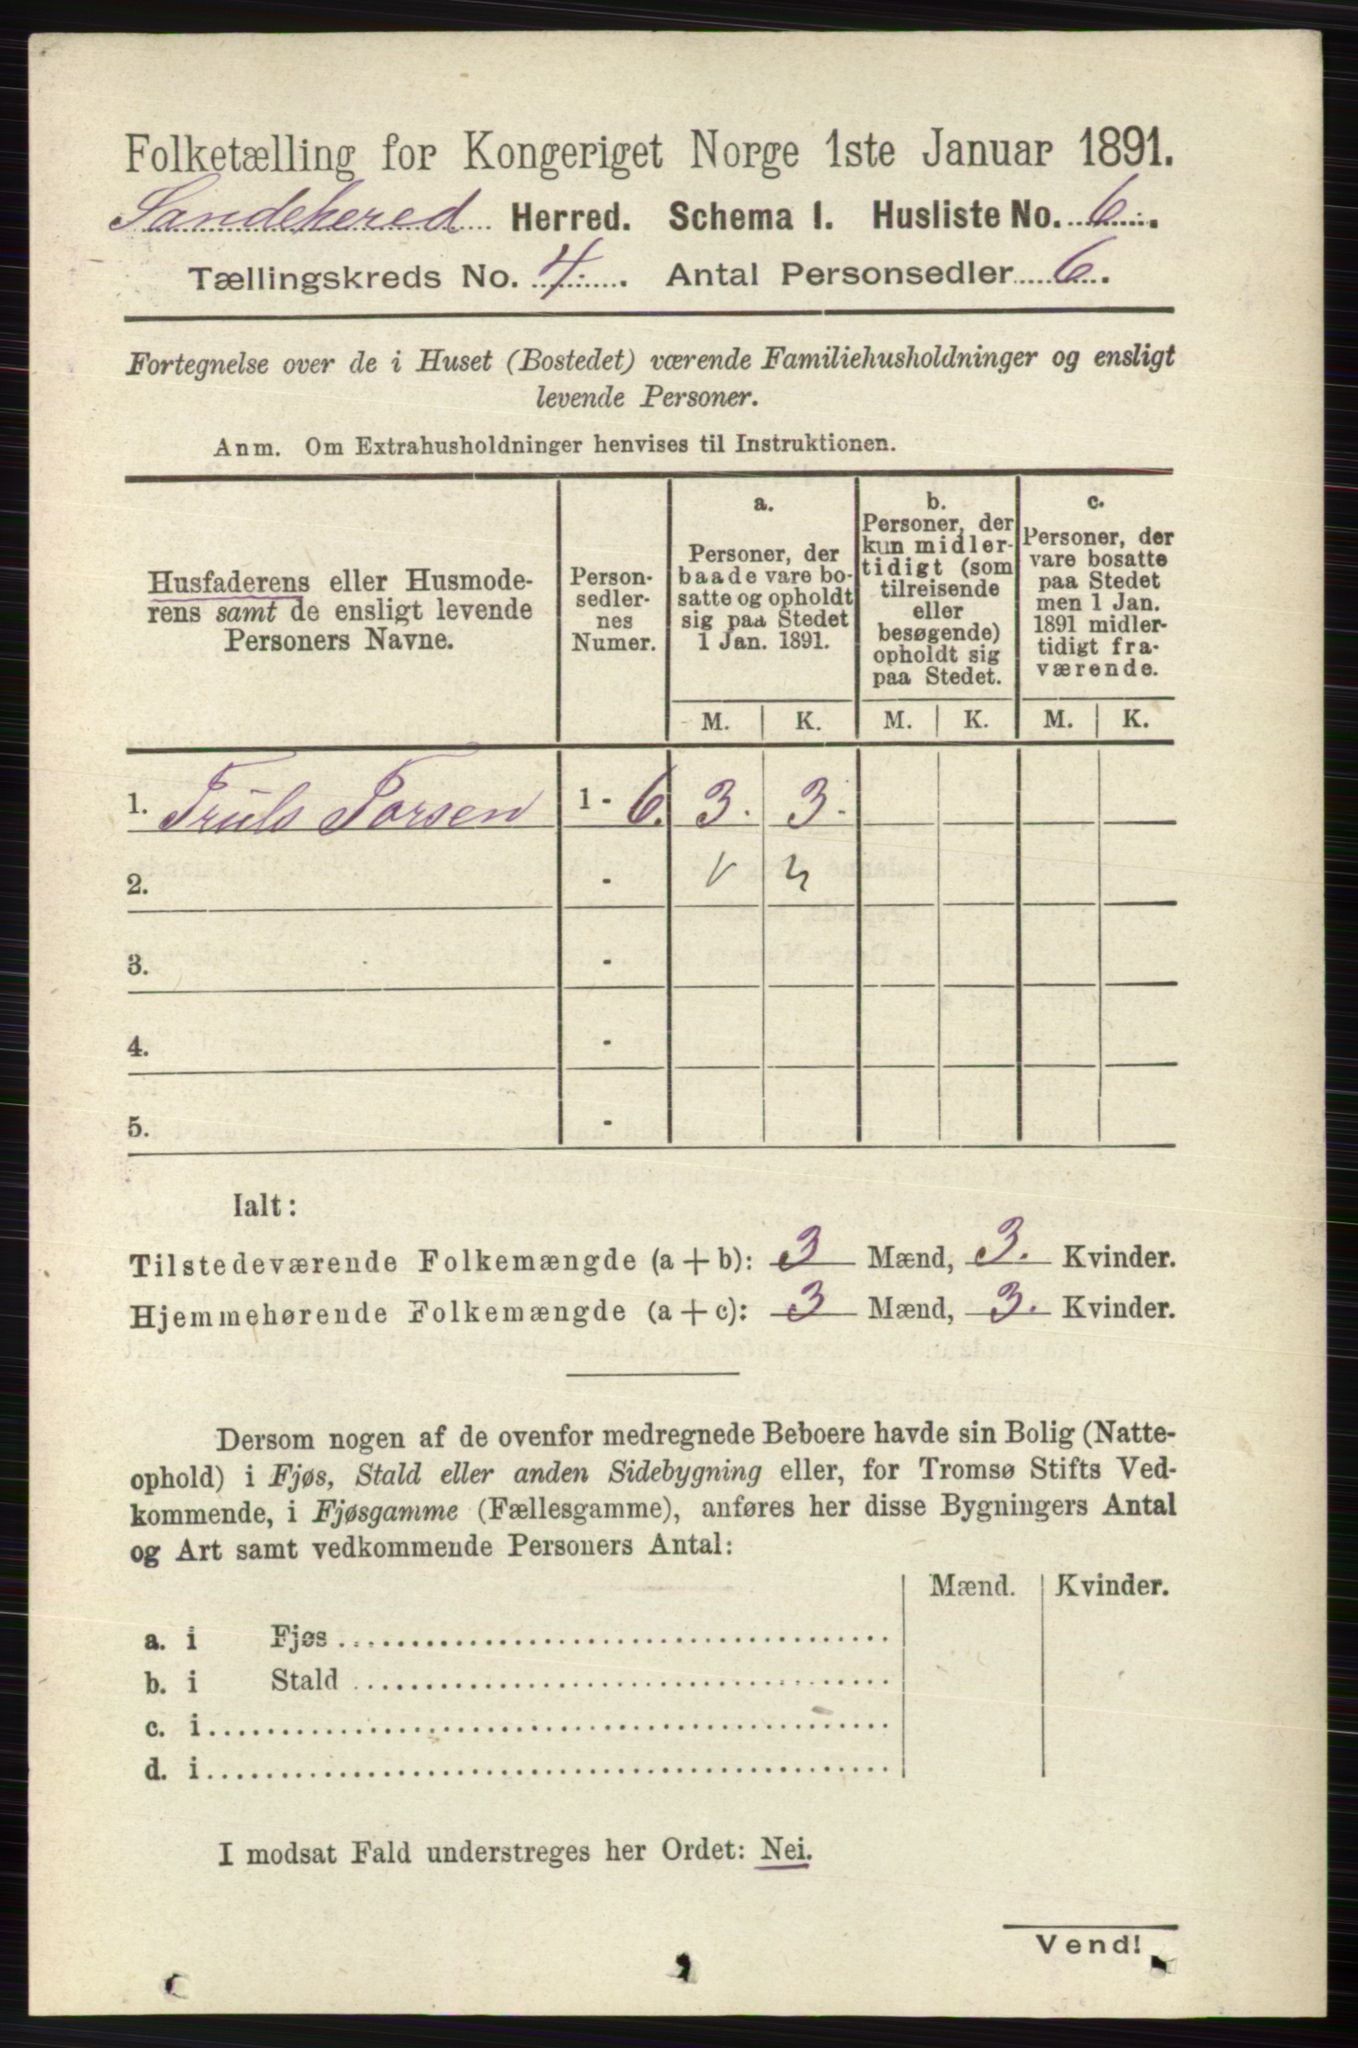 Folketælling for Kongeriget Norge 1ste Januar 1891.
Sandehered Herred. Schema I. Husliste No. 6.
Tællingskreds No. 4. Antal Personsedler 6.
Fortegnelse over de i Huset (Bostedet) værende Familiehusholdninger og ensligt
levende Personer.
Anm. Om Extrahusholdninger henvises til Instruktionen.
Husfaderens eller Husmode-
rens samt de ensligt levende
Personers Navne.
Person-
sedler-
nes
Numer.
a.
Personer, der
baade vare bo-
satte og opholdt
sig paa Stedet
1 Jan. 1891.
b.
Personer, der
kun midler-
tidigt (som
tilreisende
eller
besøgende)
opholdt sig
paa Stedet.
c.
Personer, der
vare bosatte
paa Stedet
men 1 Jan.
1891 midler-
tidigt fra-
værende.
M. K. M. K. M. K.
1. Truls Torsen 1 - 6. 3. 3.
2. -
3. -
4. -
5. -
Ialt:
Tilstedeværende Folkemængde (a + b): 3 Mænd, 3. Kvinder.
Hjemmehørende Folkemængde (a + c): 3 Mænd, 3. Kvinder.
Dersom nogen af de ovenfor medregnede Beboere havde sin Bolig (Natte-
ophold) i Fjøs, Stald eller anden Sidebygning eller, for Tromsø Stifts Ved-
kommende, i Fjøsgamme (Fællesgamme), anføres her disse Bygningers Antal
og Art samt vedkommende Personers Antal:
Mænd. Kvinder.
a. i Fjøs
b. i Stald
c. i
d. i
I modsat Fald understreges her Ordet: Nei.
Vend!